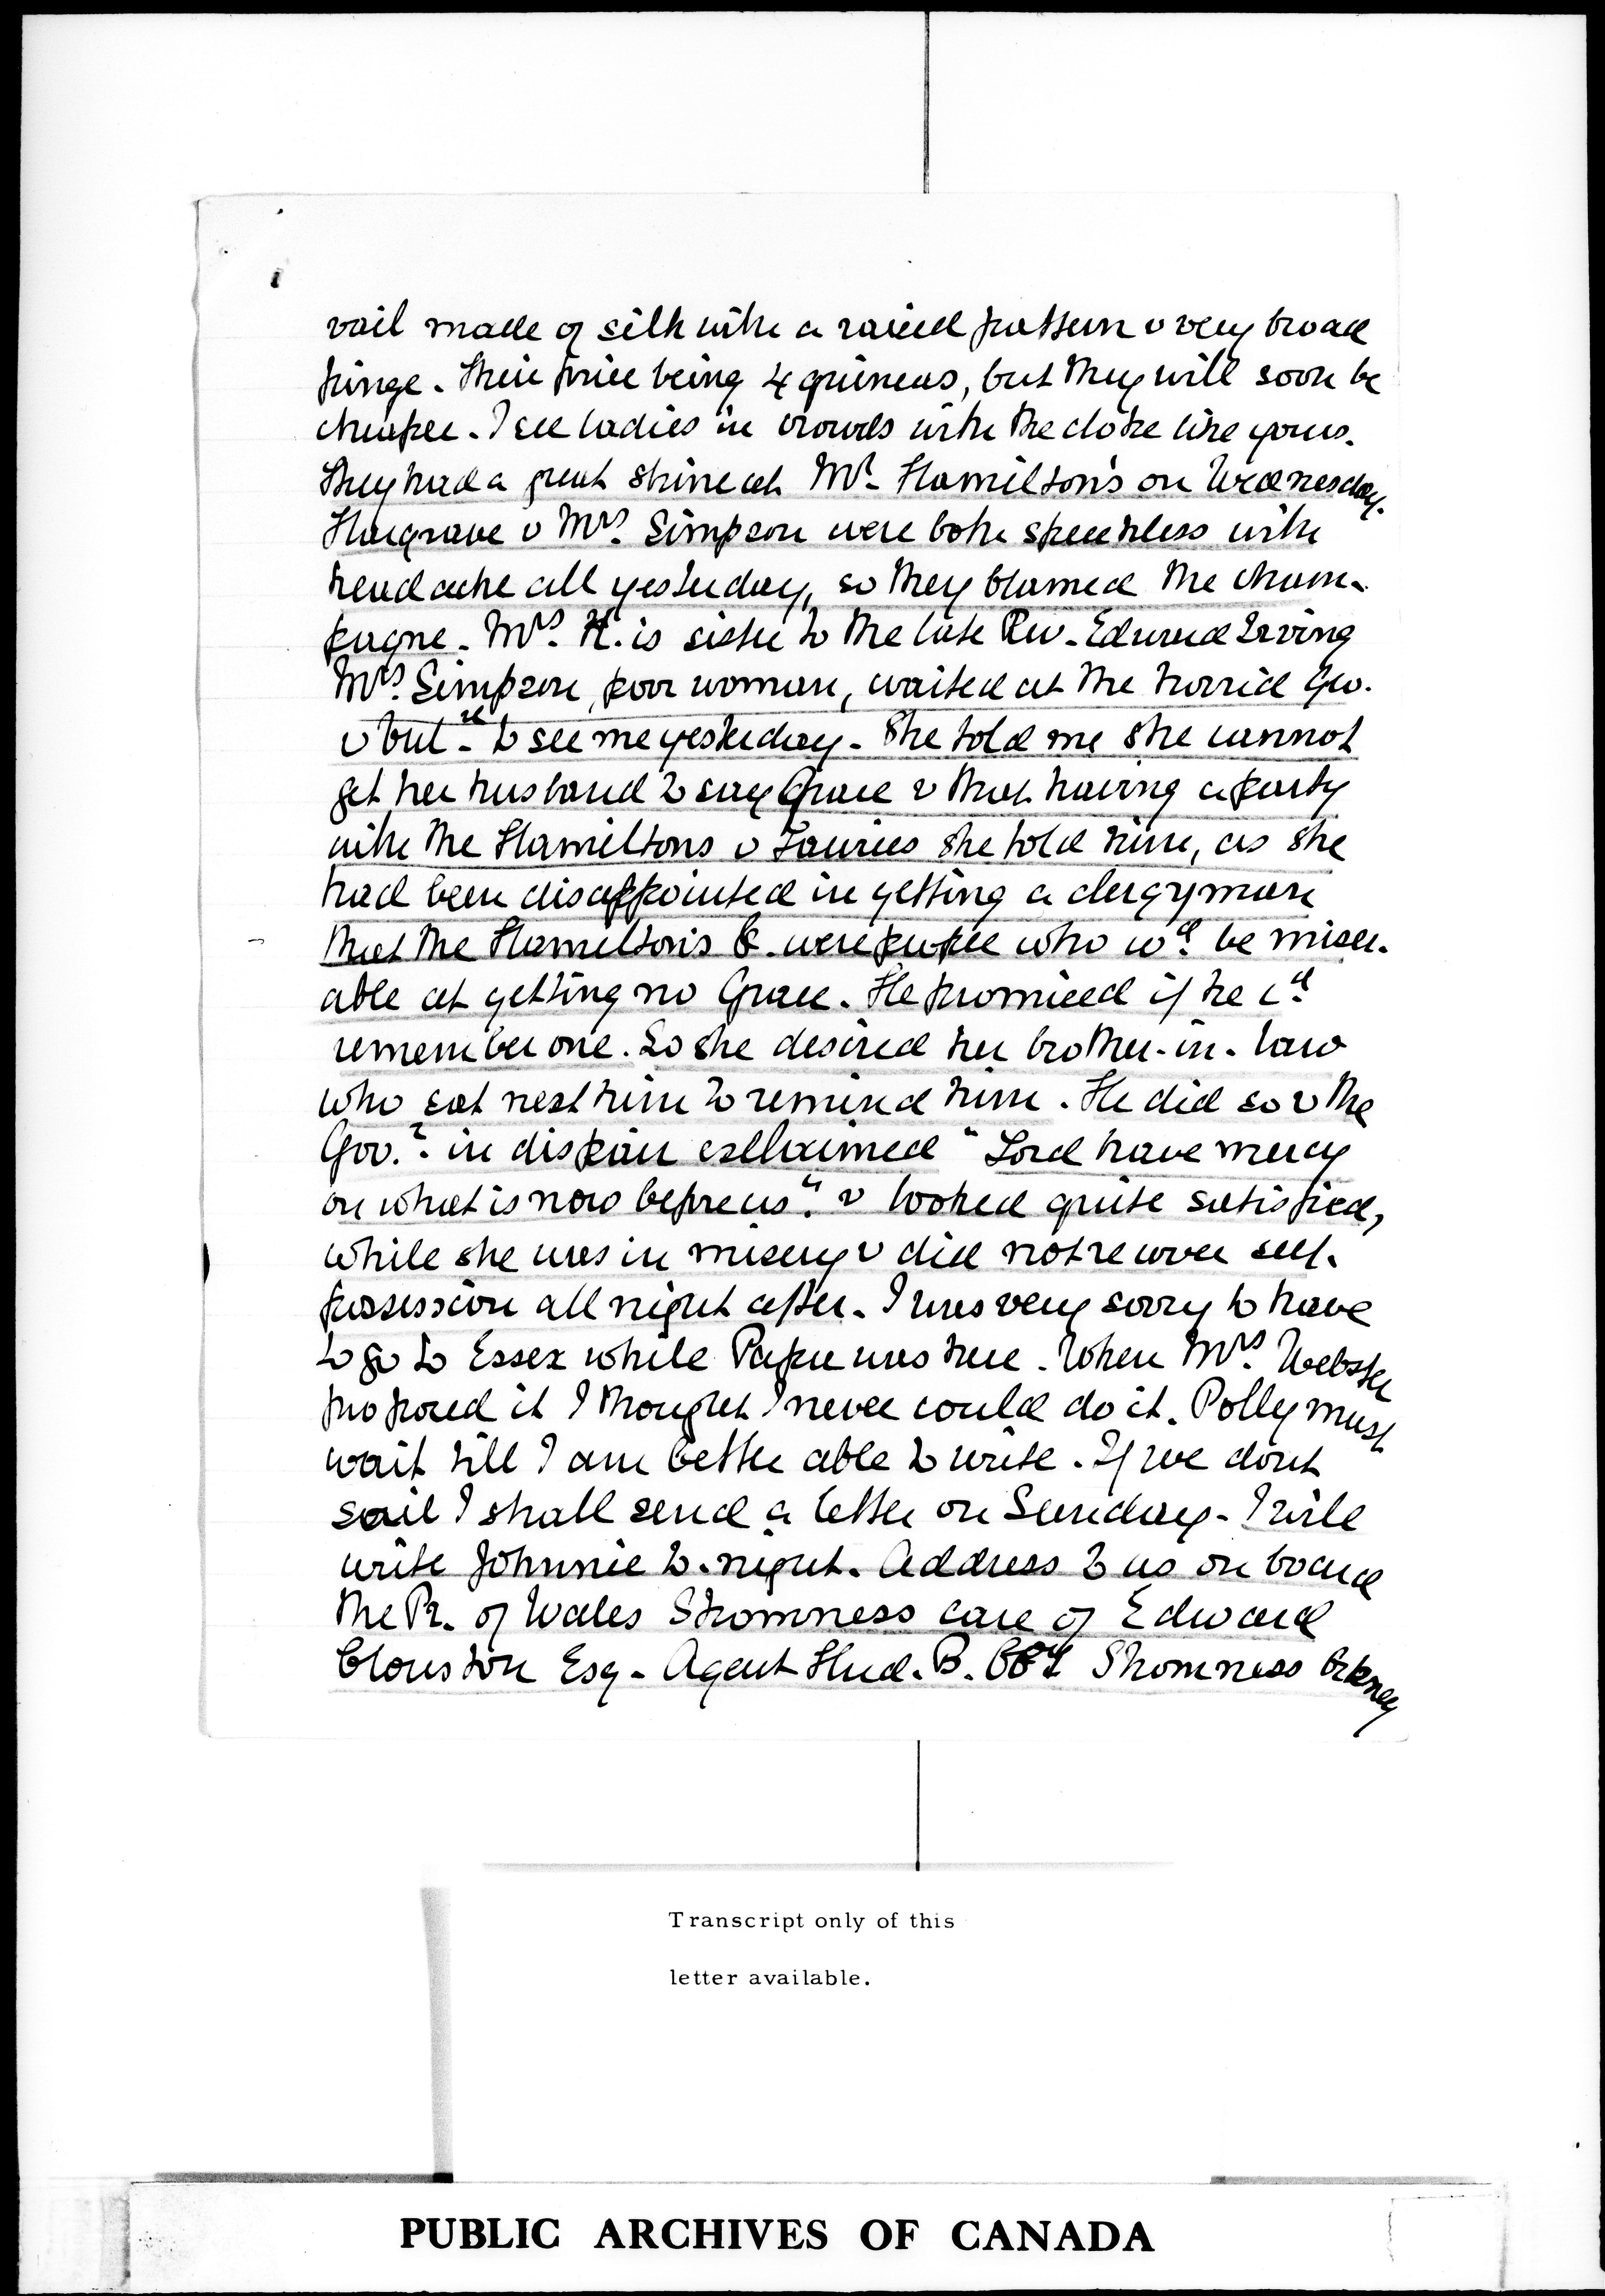 vail made of silk with a raised pattern & very broad
fringe. Their price being 4 guineas, but they will soon be
cheaper. I see ladies in crowds with the cloke like yours.
They had a great shine at Mr. Hamilton's on Wednesday.
Hargrave & Mrs. Simpson were both speechless with
head ache all yesterday, so they blamed the cham-
pagne. Mrs. H. is sister to the late Rev. Edward Irving
Mrs. Simpson, poor woman, waited at the horrid Gro.
to see me yesterday. She told me she cannot
get her husband to say Grace & that having a party
with the Hamiltons & Lauries she told him, as she
had been disappointed in getting a clergyman
that the Hamilton's &. were people who wd. be miser-
able at getting no Grace. He promised if he cd.
remember one. So she desired her brother-in-law
who sat next him to remind him. He did so & the
Gov.r in dispair exclaimed "Lord have mercy
on what is now before us". & looked quite satisfied,
while she was in misery & did not recover self-
possession all night after. I was very sorry to have
to go to Essex while Papa was here. When Mrs. Webster
proposed it I thought I never could do it. Polly must
wait till I am better able to write. If we dont
sail I shall send a letter on Sunday. I will
write Johnnie to-night. Address to us on board
the Pr. of Wales Stromness care of Edward
Clouston Esq. Agent Hud. B. Coy Stromness Orkney
Transcript only of this
letter available.
PUBLIC ARCHIVES OF CANADA